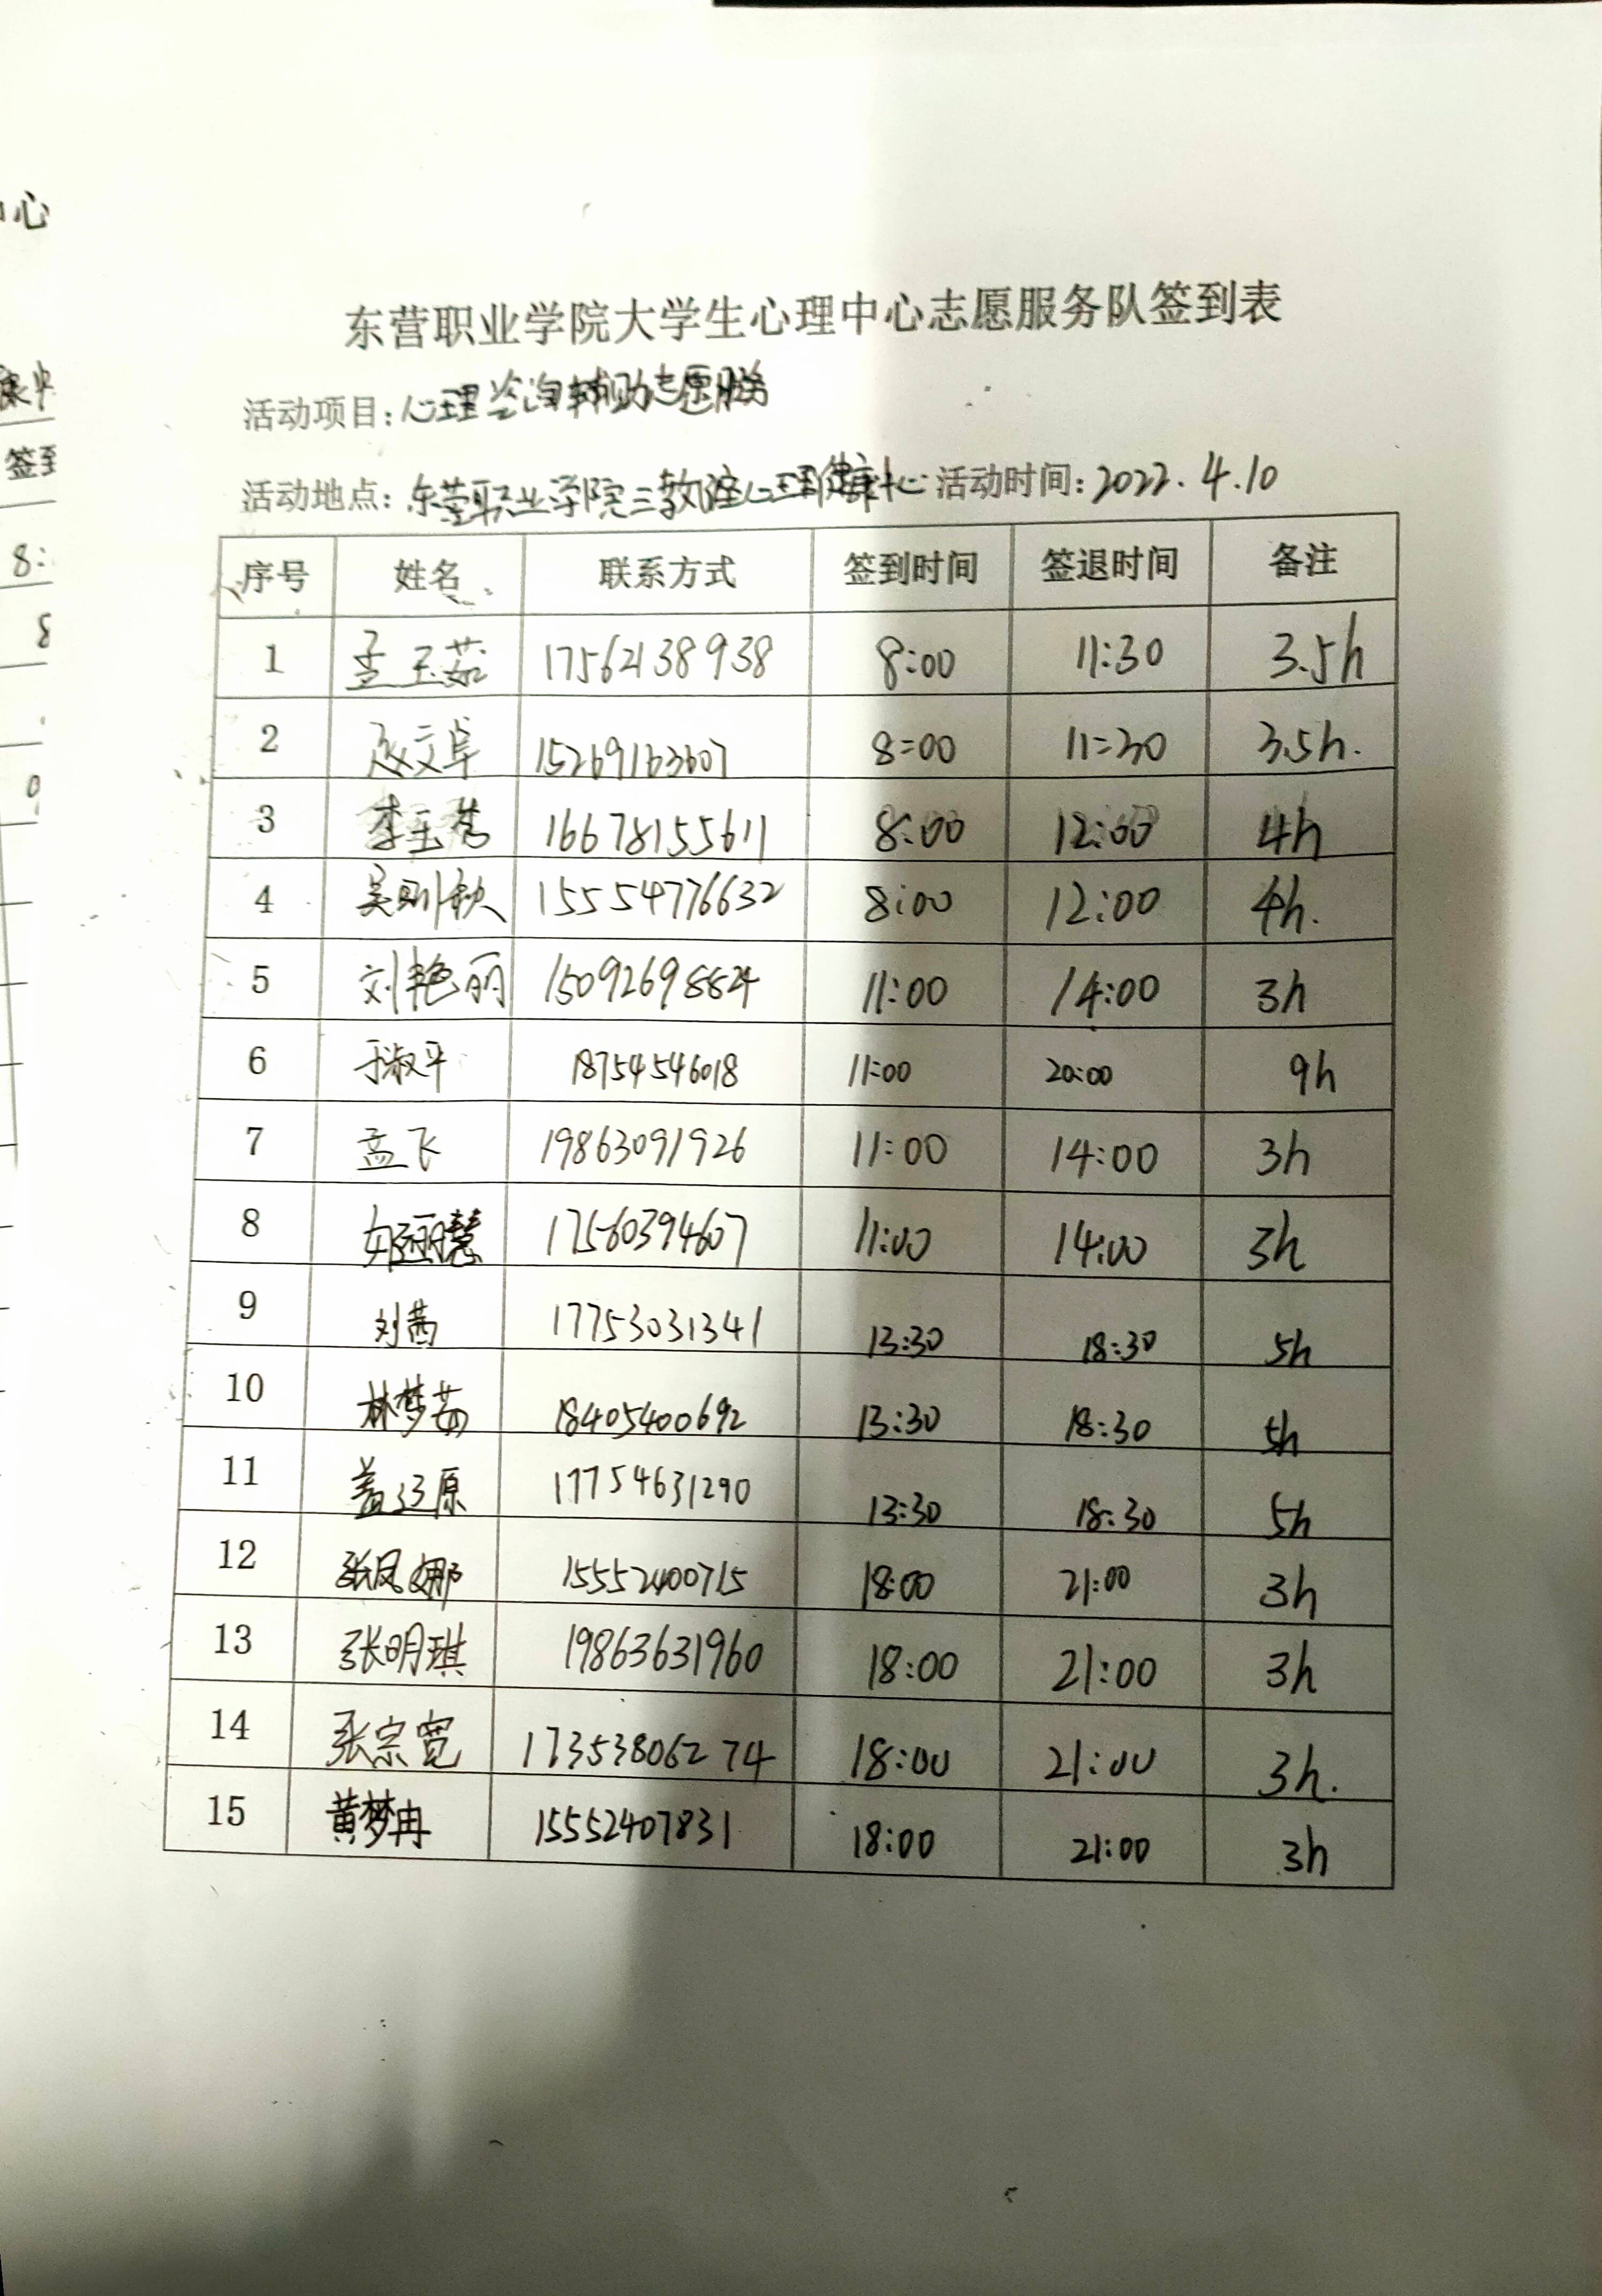 心
签到
8:
东营职业学院大学生心理中心志愿服务队签到表
活动项目: 心理咨询辅助志愿服务
活动地点: 东营职业学院三教 心理健康中心 活动时间: 2022.4.10
序号 姓名 联系方式 签到时间 签退时间 备注
1 孟玉茹 17562138938 8:00 11:30 3.5h
2 赵文卓 15269163607 8:00 11:30 3.5h.
3 李玉 16678155611 8:00 12:00 4h
4 吴刚秋 15554776632 8:00 12:00 4h.
5 刘艳丽 15092698824 11:00 14:00 3h
6 于淑平 18754546018 11:00 20:00 9h
7 孟飞 19863091926 11:00 14:00 3h
8 17560394607 11:00 14:00 3h
9 刘茜 17753031341 13:30 18:30 5h
10 林梦茹 18405400692 13:30 18:30 5h
11 盖江原 17754631290 13:30 18:30 5h
12 张凤娜 15552400715 18:00 21:00 3h
13 张明琪 19863631960 18:00 21:00 3h
14 张宗宽 17353806274 18:00 21:00 3h.
15 黄梦冉 15552407831 18:00 21:00 3h